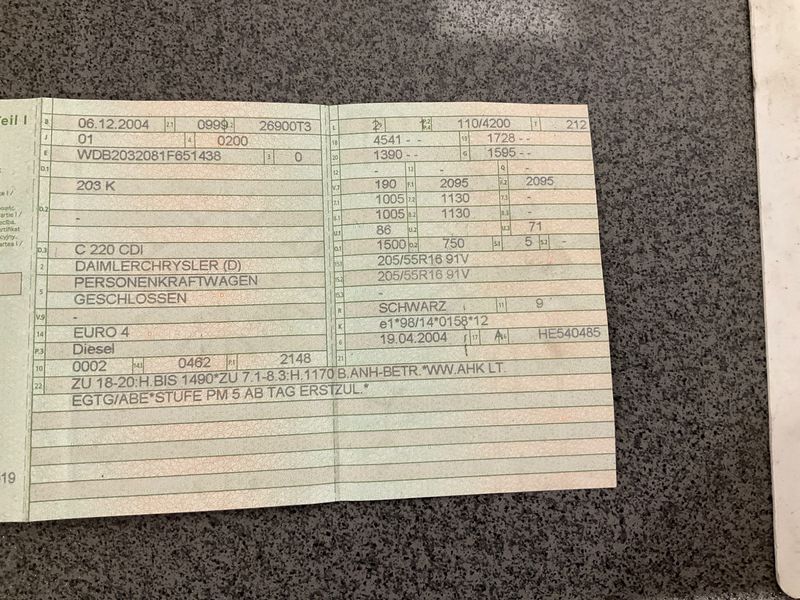 Teil I
B 06.12.2004 2.1 0999 26900T3
J 01 4 0200
E WDB2032081F651438 3 0
D.1
203 K
D.2 -
D.3 C 220 CDI
2 DAIMLERCHRYSLER (D)
5 PERSONENKRAFTWAGEN
GESCHLOSSEN
V.9 -
14 EURO 4
P.3 Diesel
10 0002 14.1 0462 P.1 2148
22 ZU 18-20:H.BIS 1490*ZU 7.1-8.3:H.1170 B.ANH-BETR.*WW.AHK LT.
EGTG/ABE*STUFE PM 5 AB TAG ERSTZUL.*
L 2 P.2 P.4 110/4200 T 212
18 4541 - - 19 1728 - -
20 1390 - - G 1595 - -
12 - 13 - Q -
V.7 190 F.1 2095 F.2 2095
7.1 1005 7.2 1130 7.3 -
8.1 1005 8.2 1130 8.3 -
U.1 86 U.2 U.3 71
O.1 1500 O.2 750 S.1 5 S.2 -
15.1 205/55R16 91V
15.2 205/55R16 91V
15.3 -
R SCHWARZ 11 9
K e1*98/14*0158*12
6 19.04.2004 17 A 16 HE540485
21